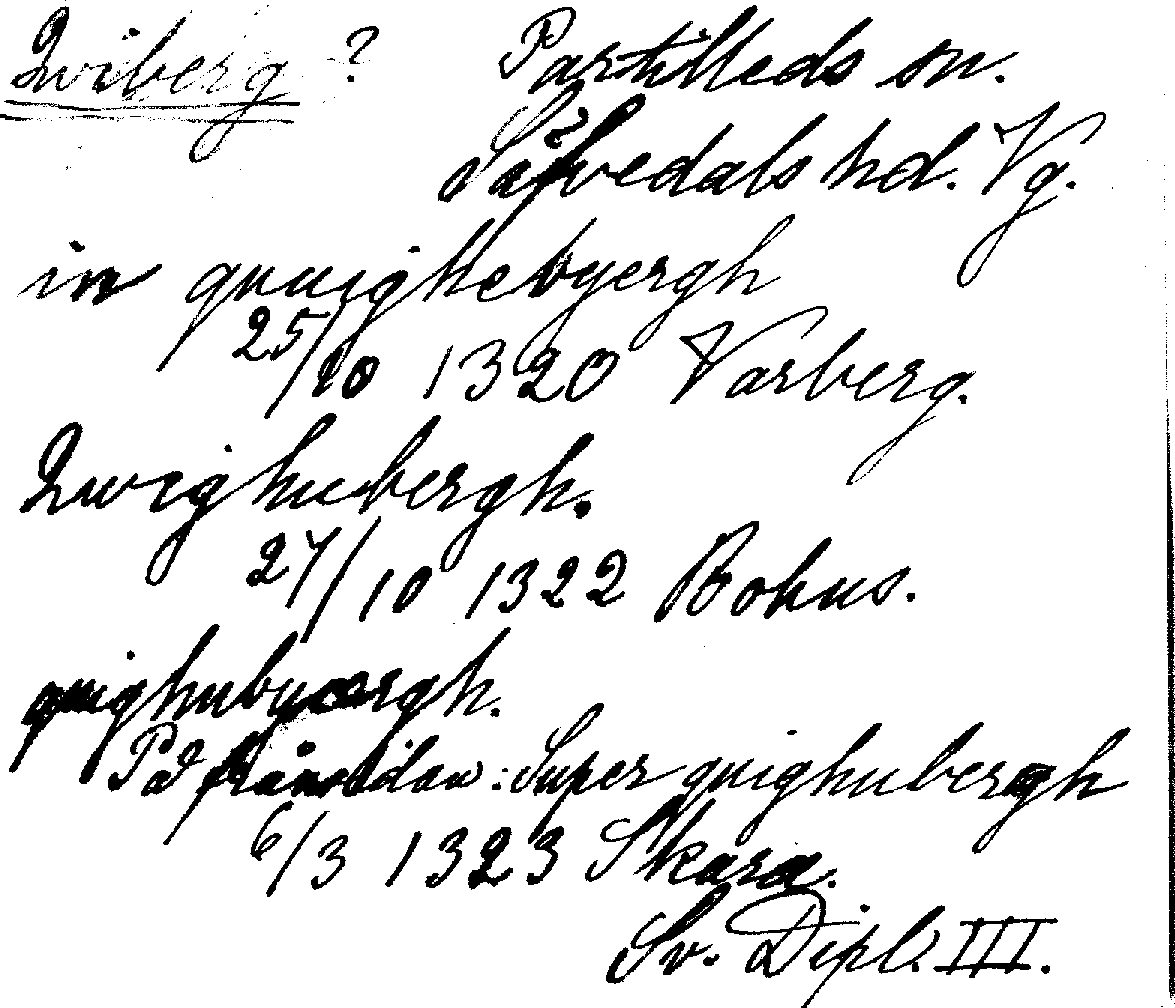 Qviberg ?
Partilleds sn.
Sävedals hd. Vg.
in quuighebyergh
25/10 1320 Varberg.
Quighubergh.
27/10 1322 Bohus.
quighubyærgh.
På frånsidan: Super quighubergh
6/3 1323 Skara.
Sv. Dipl. III.